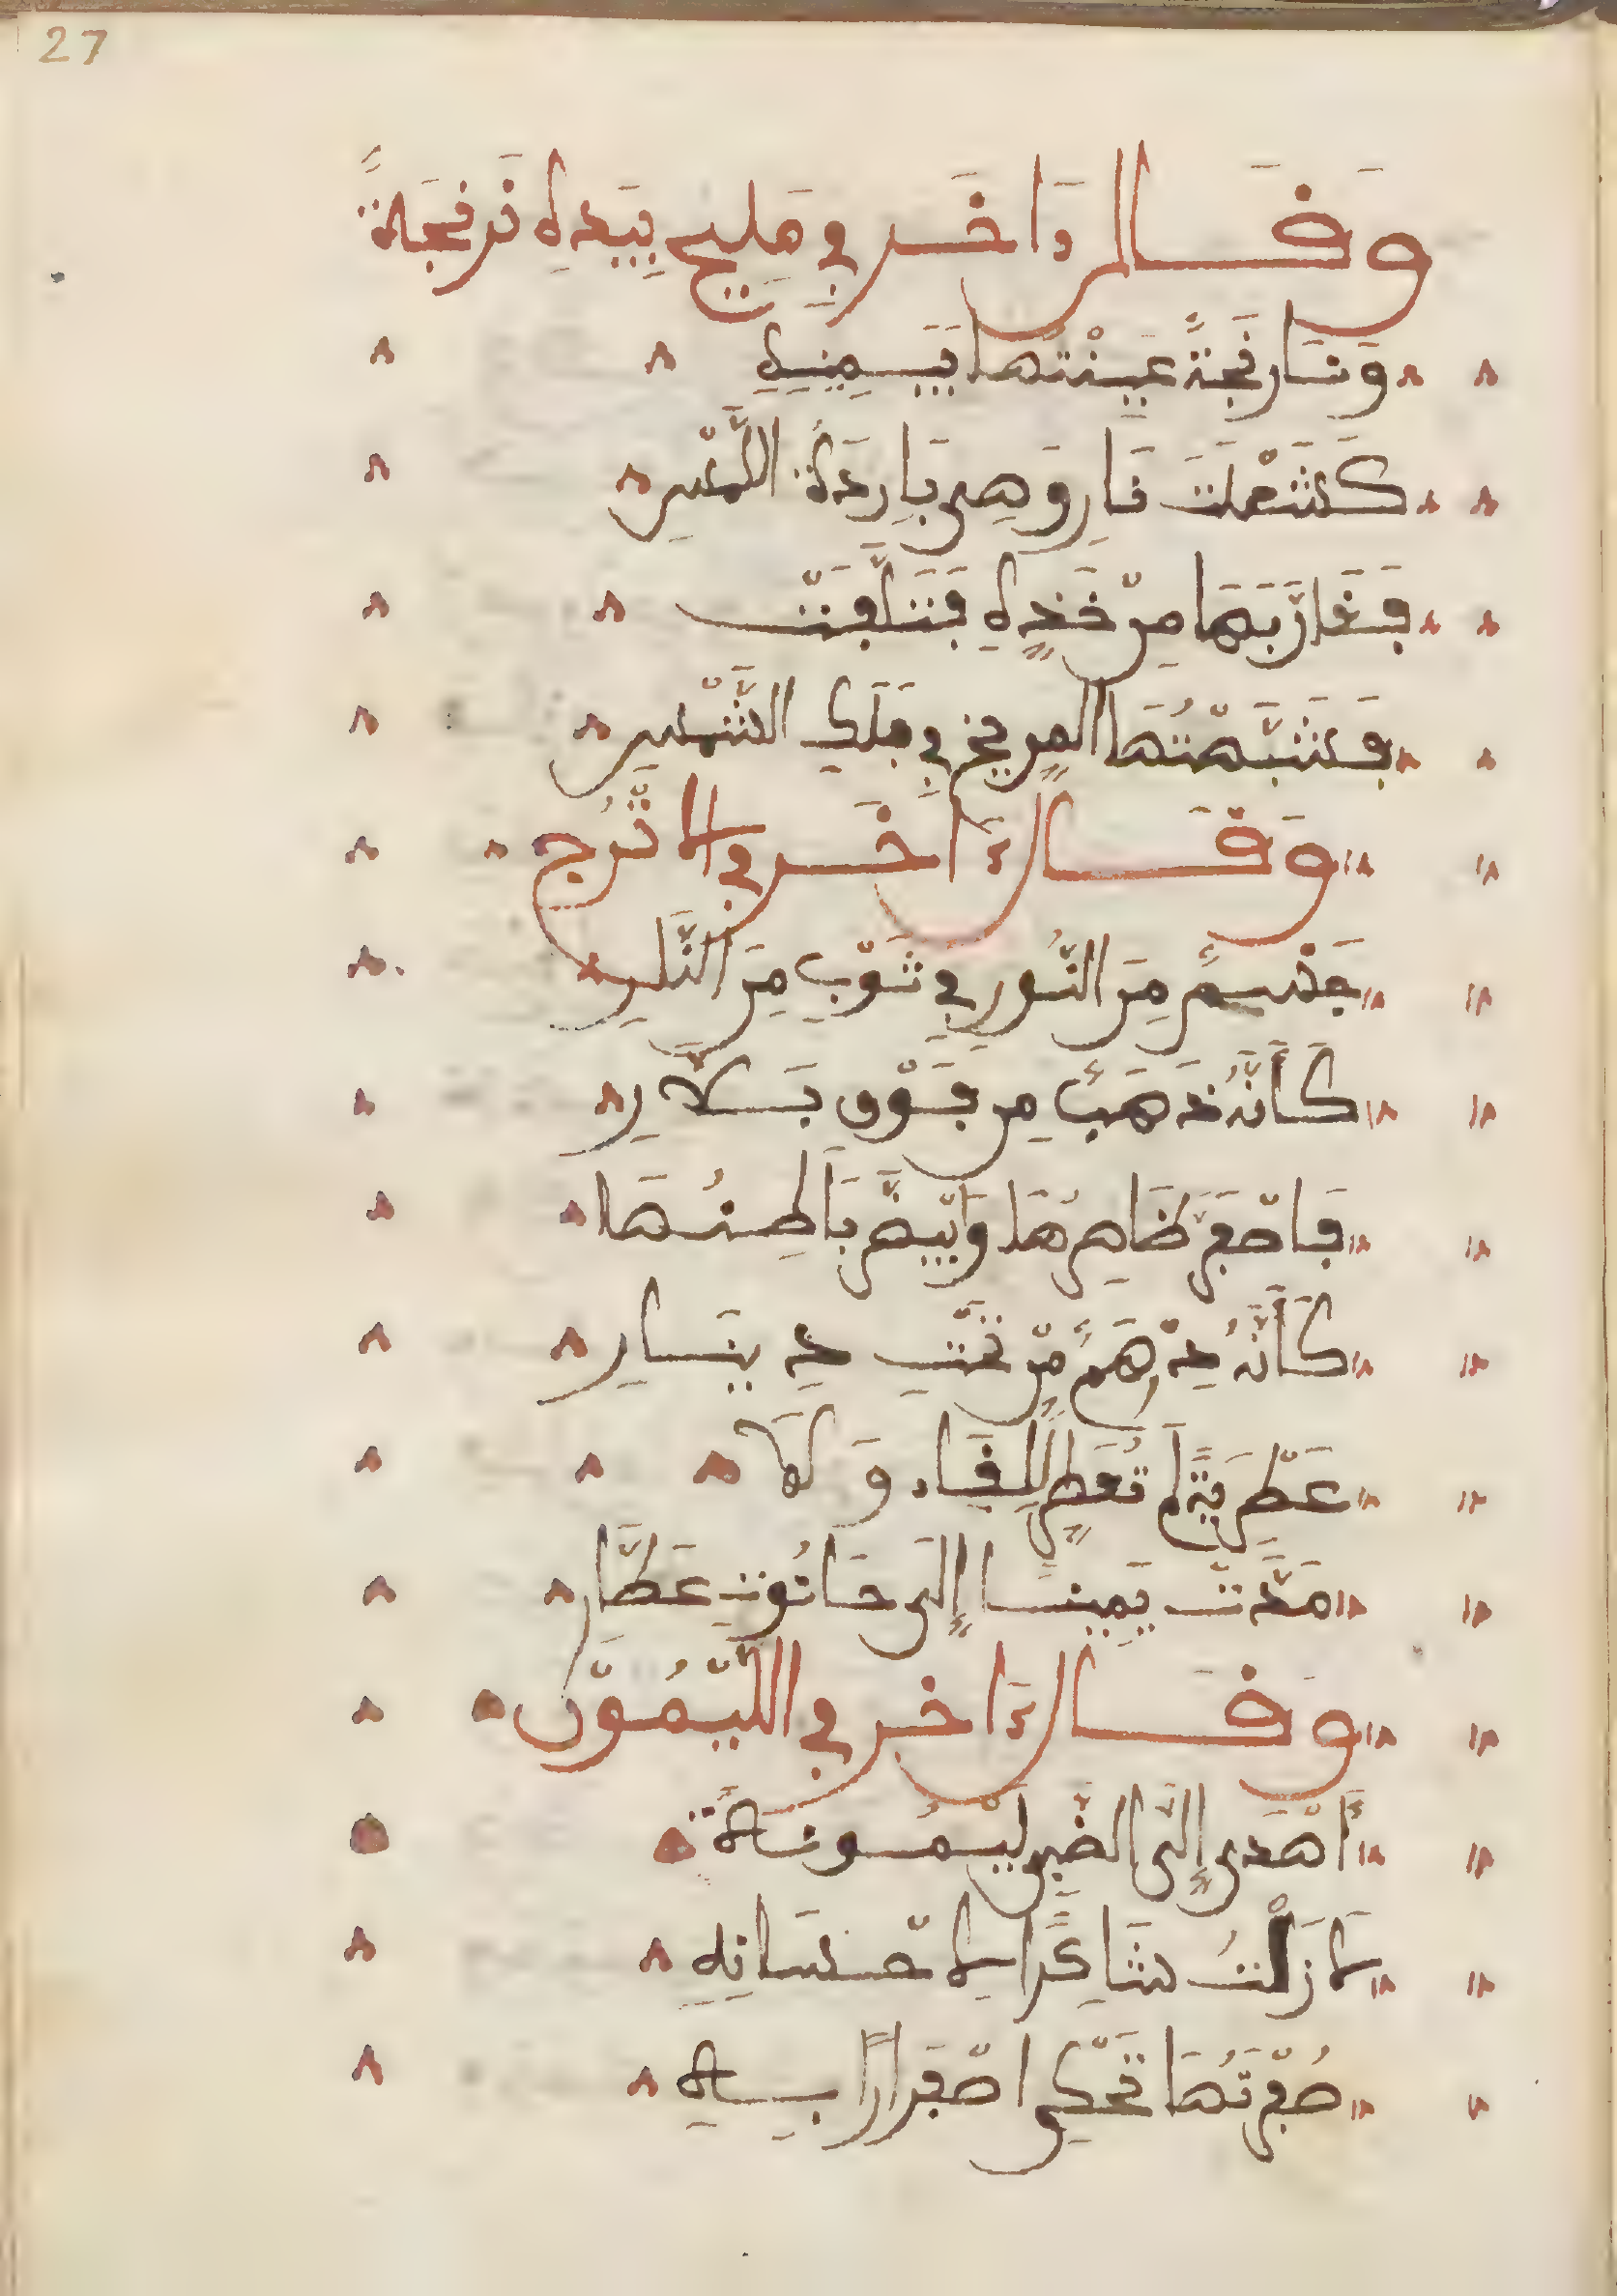 27
وَقَالَ ءَاخَر فِي مَلِيحٍ بِيَدِهِ نَرنجَةً
وَنَارنجَةً عَيَنْتُهَا بِيَمِينِهِ
كَشَعْلَتَ نَارٍ وَهِىَ بَارِدَةُ اللَّمْسِ
فَقَارَبَهَا مِنْ خَدِّهِ فَتَأَلَّفَتْ
فَشَبَّهْتُهَا المِرِيخ فِي فَلَكِ الشَّمْسِ
وَقَالَ ءَاخَر فِي الاتْرُج
جِسْمٌ مِنَ النُّورِ فِي ثَوْبٍ مِنَ النَّارِ
كَأَنَّهُ ذَهَبٌ مِن فَوْقِ بَلاَّرِ
فَاصْفَرَّ ظَاهِرُهَا وَابْيَضَّ بَاطِنُهَا
كَأَنَّهُ دِرْهَمٌ مِّنْ تَحْتِ دِينَارِ
عَطْرِيَّةً لَم تُعْطِ لِلِقَاء وَلاَ
مَدَّتْ يَمِينًا إِلَى حَانُوتِ عَطَّارِ
وَقَالَ ءَاخَر فِي اللَّيْمُون
أَهْدَى إِلَىَّ الضَّبْىُ لَيْمُونَةً
لاَ زَلْتُ شَاكِرًا لإِحْسَانِهِ
صُفْرَتُهَا تَحْكِى اصْفِرَارًا بِيَهِ